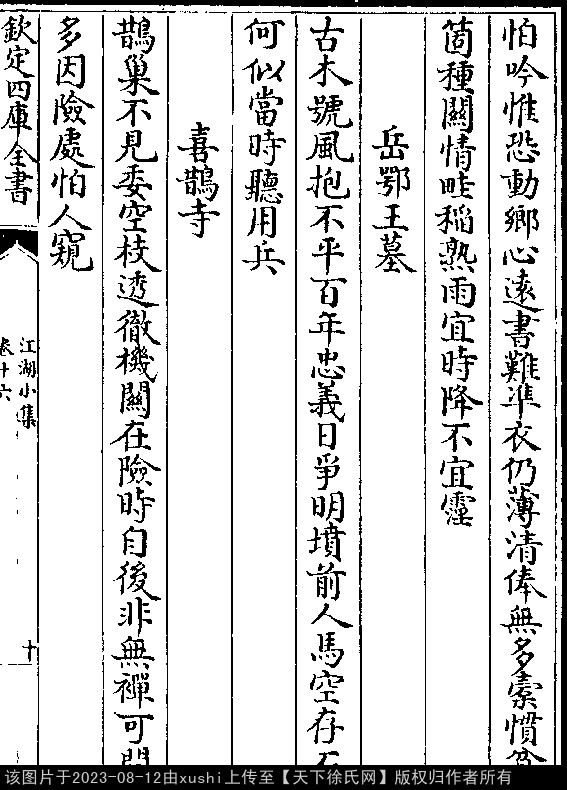 怕吟惟恐動鄉心逺書難凖衣仍薄清俸無多橐慣
箇種闗情畦稲熟雨宜時降不宜霪
岳鄂王墓
古木號風抱不平百年忠義日爭明墳前人馬空存石
何似當時聽用兵
喜鵲寺
鵲巢不見委空枝透徹機闗在險時自後非無禪可問
多因險處怕人窺
欽定四庫全書
江湖小集
卷十六
十
该图片于2023-08-12由xushi上传至【天下徐氏网】版权归作者所有